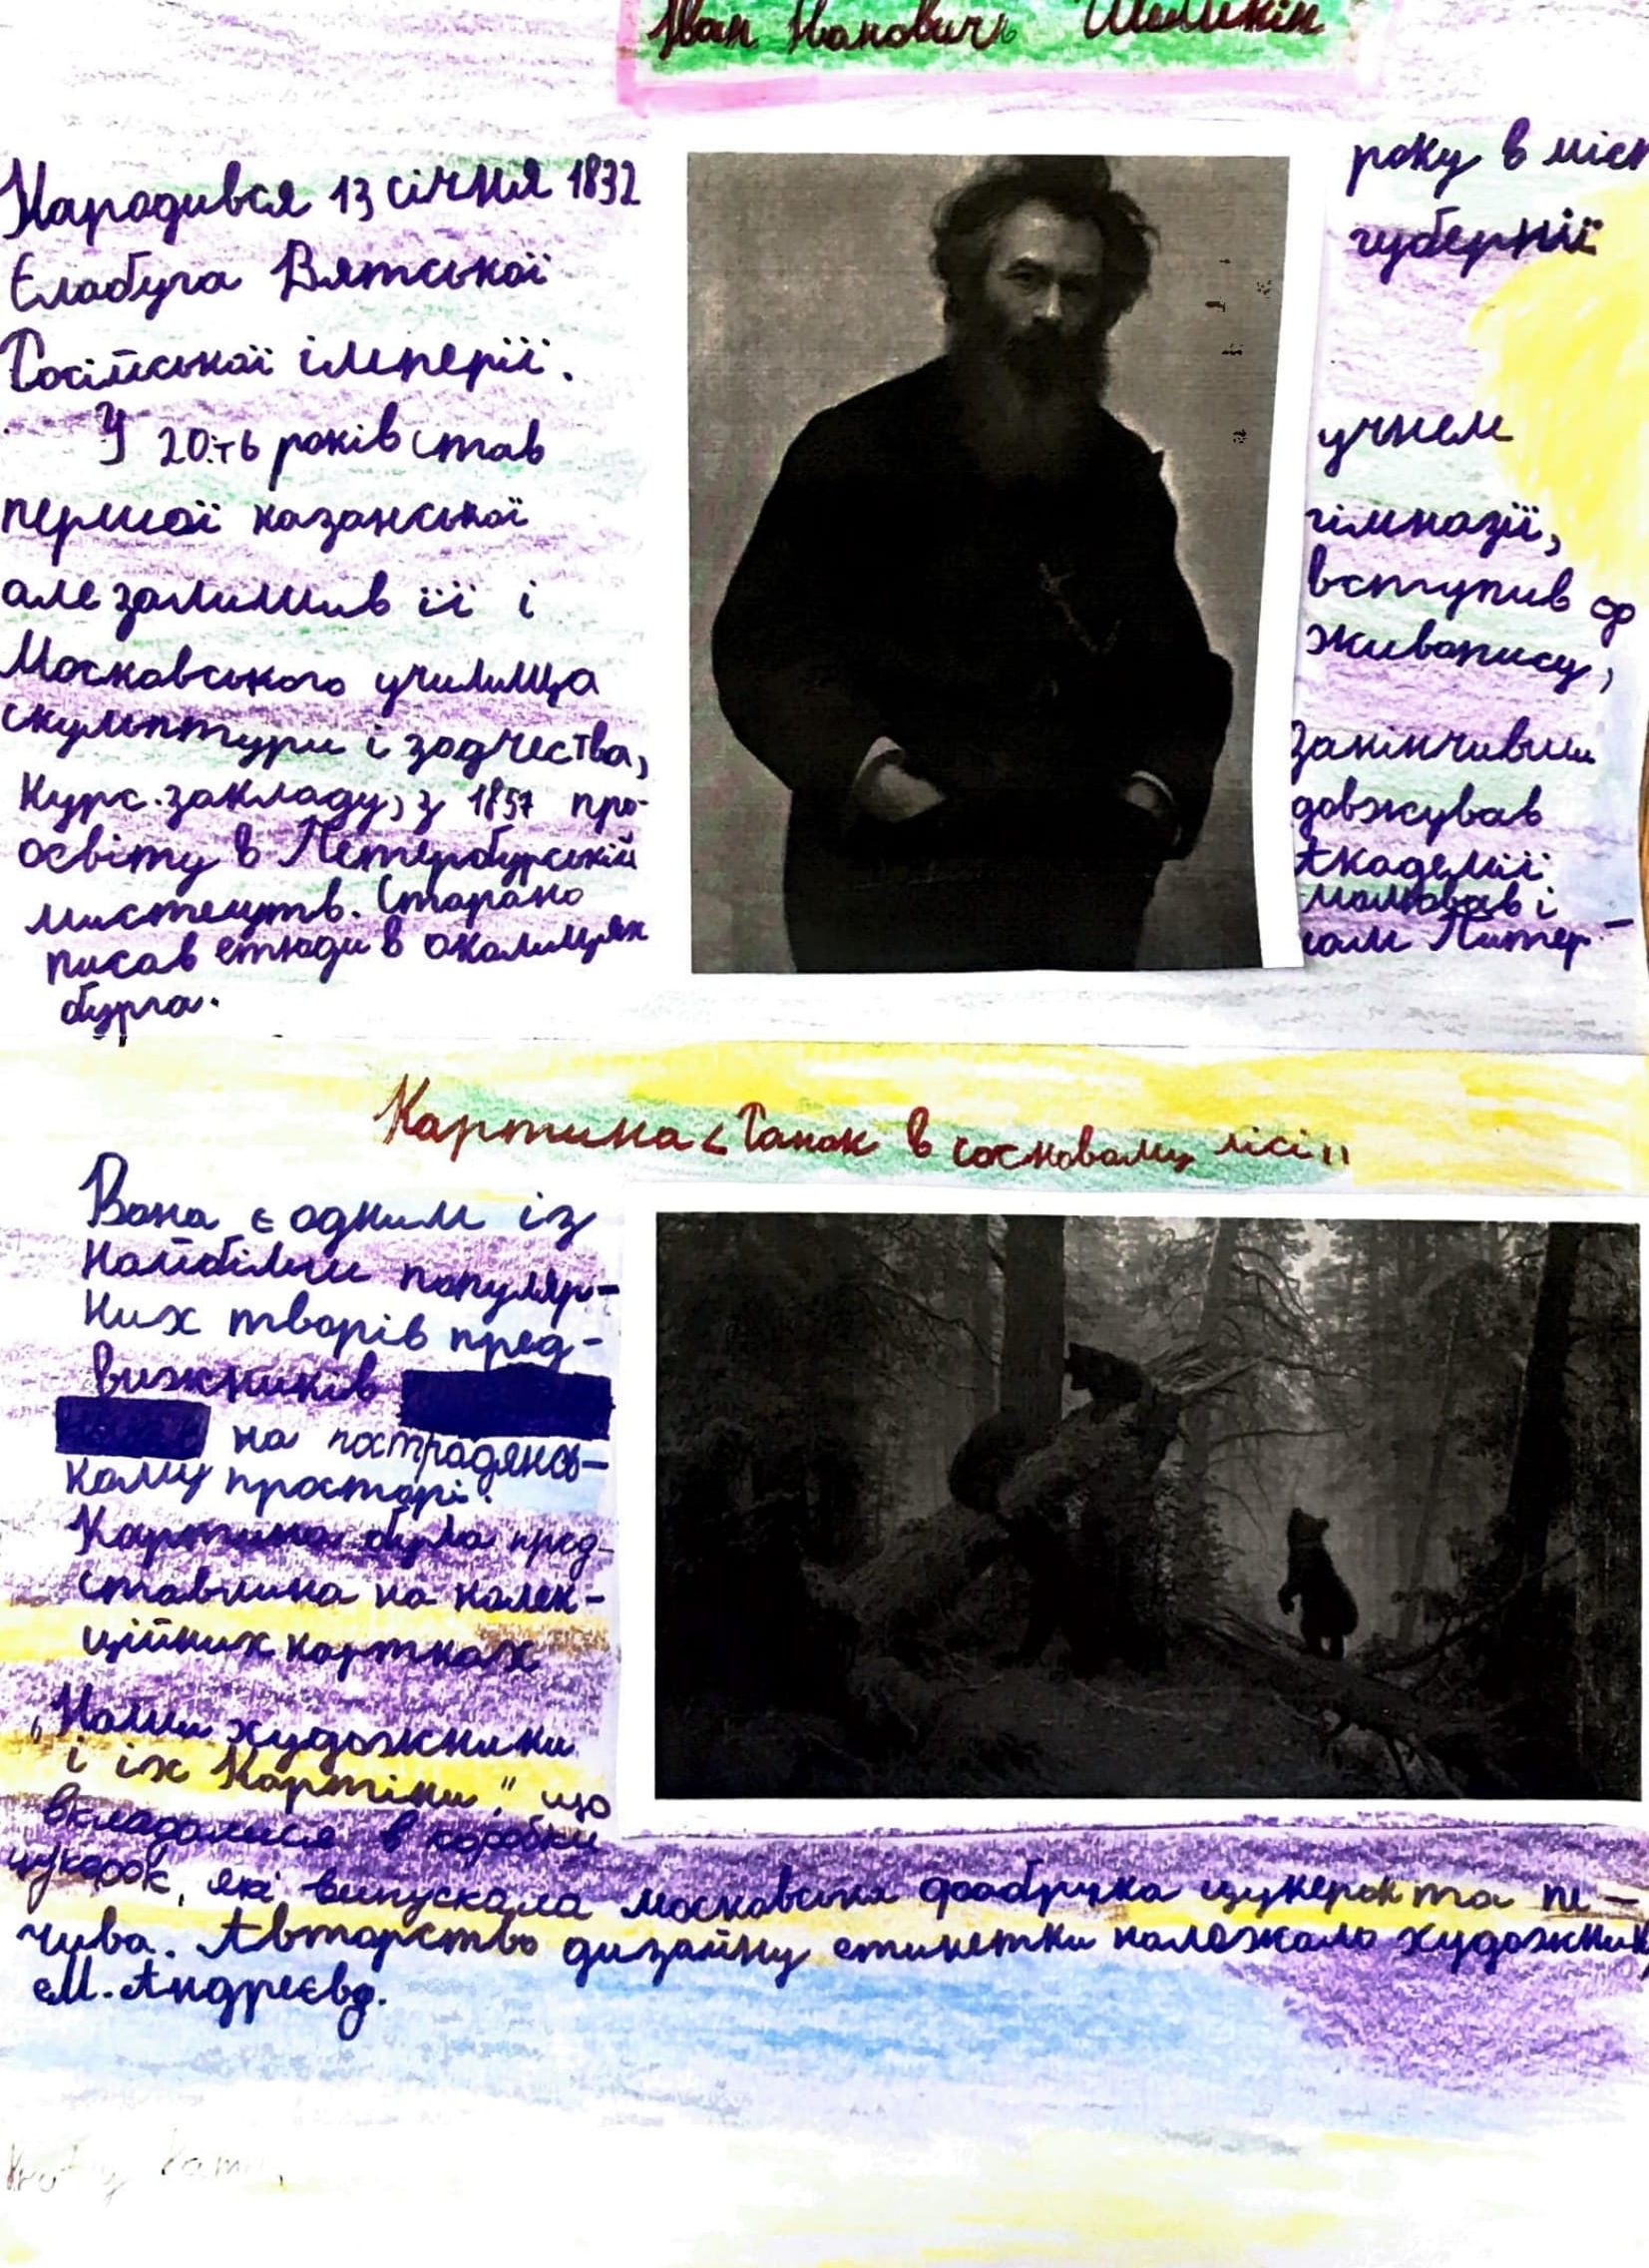 Іван Іванович Шишкін
Народився 13 січня 1832 року в міст
Єлабуга Вятської губернії
Російської імперії.
У 20-ть років став учнем
першої казанської гімназії,
але залишив її і вступив до
Московського училища живопису,
скульптури і зодчества, Закінчивши
курс закладу, з 1857 продовжував
освіту в Петербурській Академії
мистецтв. Старано малював і
писав етюди в околицях Питер-
бурга.
Картина "Ранок в сосновому лісі"
Вона є одним із
найбільш популяр-
них творів пред-
вижників
на пострадянсь-
кому просторі.
Картина була пред-
ставлина на колек-
ційних картках
"Наши художники
і їх Картіни", що
вкладалися в коробки
цукорок, які випускала московська фообрика цукерок та пе-
чива. Авторство дизайну етикетки належало художнику
М. Андреєвд.